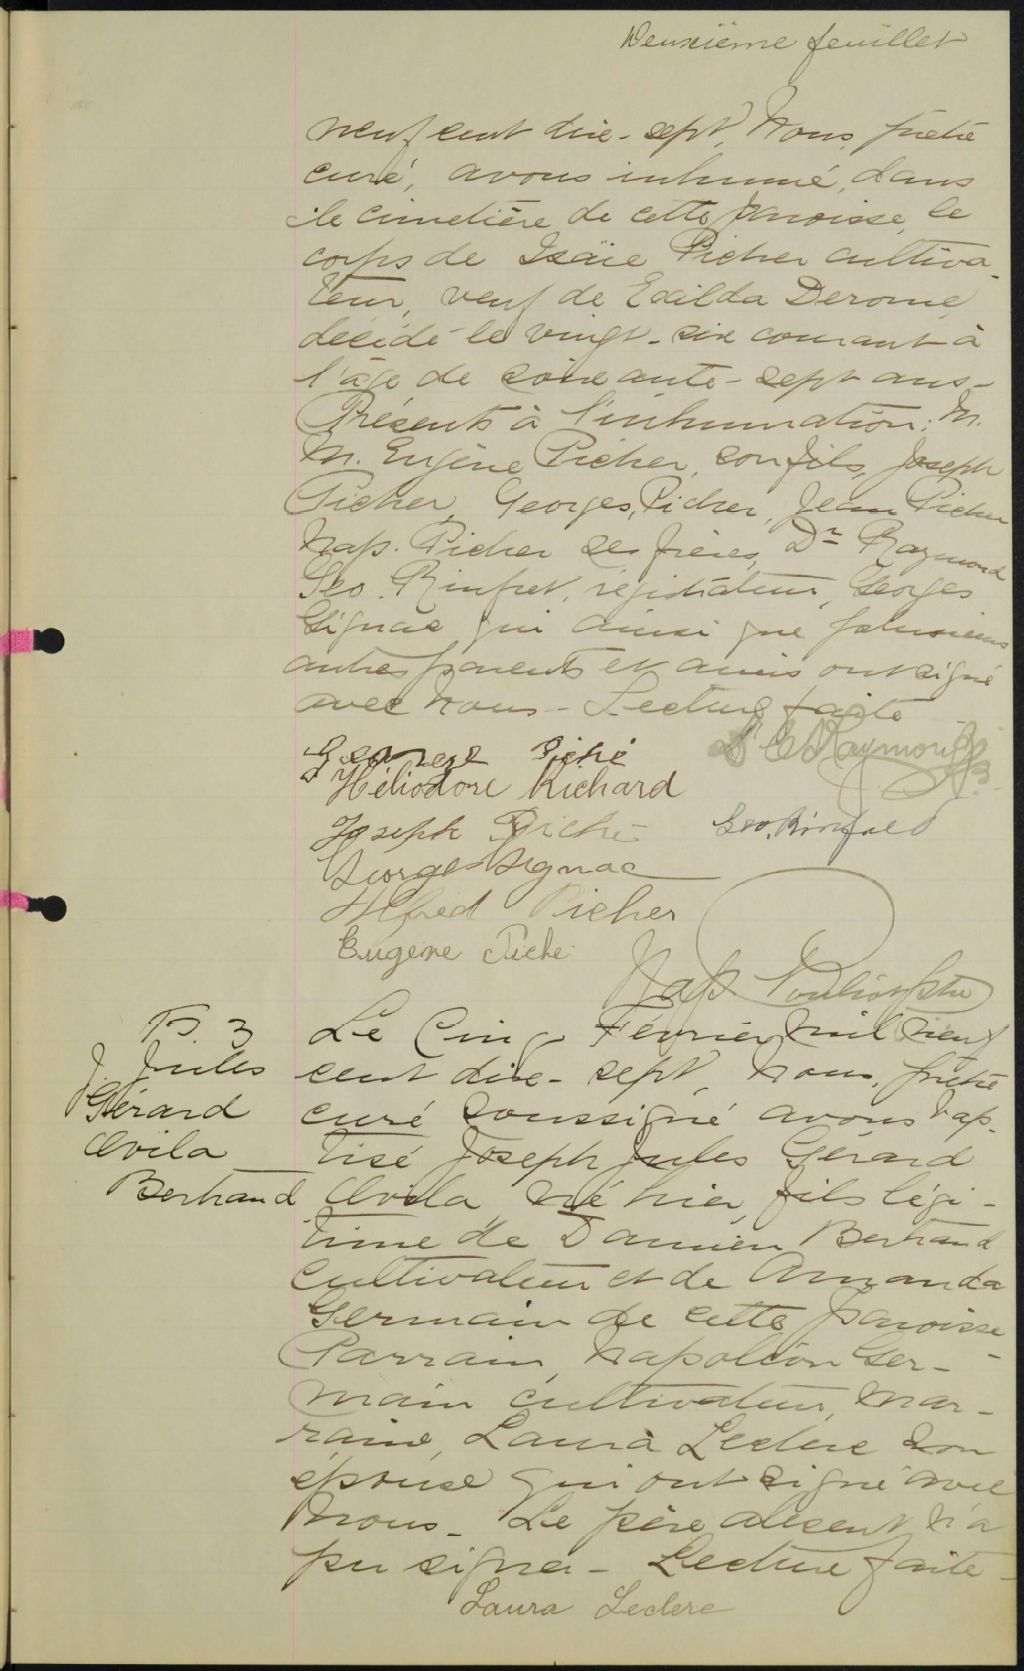 Deuxième feuillet
neuf cent dix-sept, Nous, prêtre
curé, avons inhumé, dans
le cimetière de cette paroisse, le
corps de Isaïe Picher cultiva-
teur, veuf de Exilda Derome,
décédé le vingt-six courant à
l'âge de soixante-sept ans-
Présents à l'inhumation: M.
M. Eugène Picher, son fils, Joseph
Picher, Georges, Picher, Jean Picher
Nap. Picher ses frères, Dr Raymond
Geo. Rinfret, régistrateur, Georges
Gignac qui ainsi que plusieurs
autres parents et amis ont signé
avec nous - Lecture faite
George Piché
Raymond
Héliodore Richard
Joseph Piché
Geo. Rinfret
George Gignac
Alfred Picher
Eugène Piché
Nap. Pouliot, ptre
B. 3
J. Jules
Gérard
Avila
Bertrand
Le Cinq Février mil neuf
cent dix-sept, Nous, prêtre
curé soussigné avons bap-
tisé Joseph Jules Gérard
Avila, né hier, fils légi-
time de Damien Bertrand
cultivateur et de Amanda
Germain de cette paroisse -
Parrain, Napoléon Ger-
main cultivateur, mar-
raine, Laura Leclerc son
épouse qui ont signé avec
Nous - Le père absent n'a
pu signer - Lecture faite -
Laura Leclerc